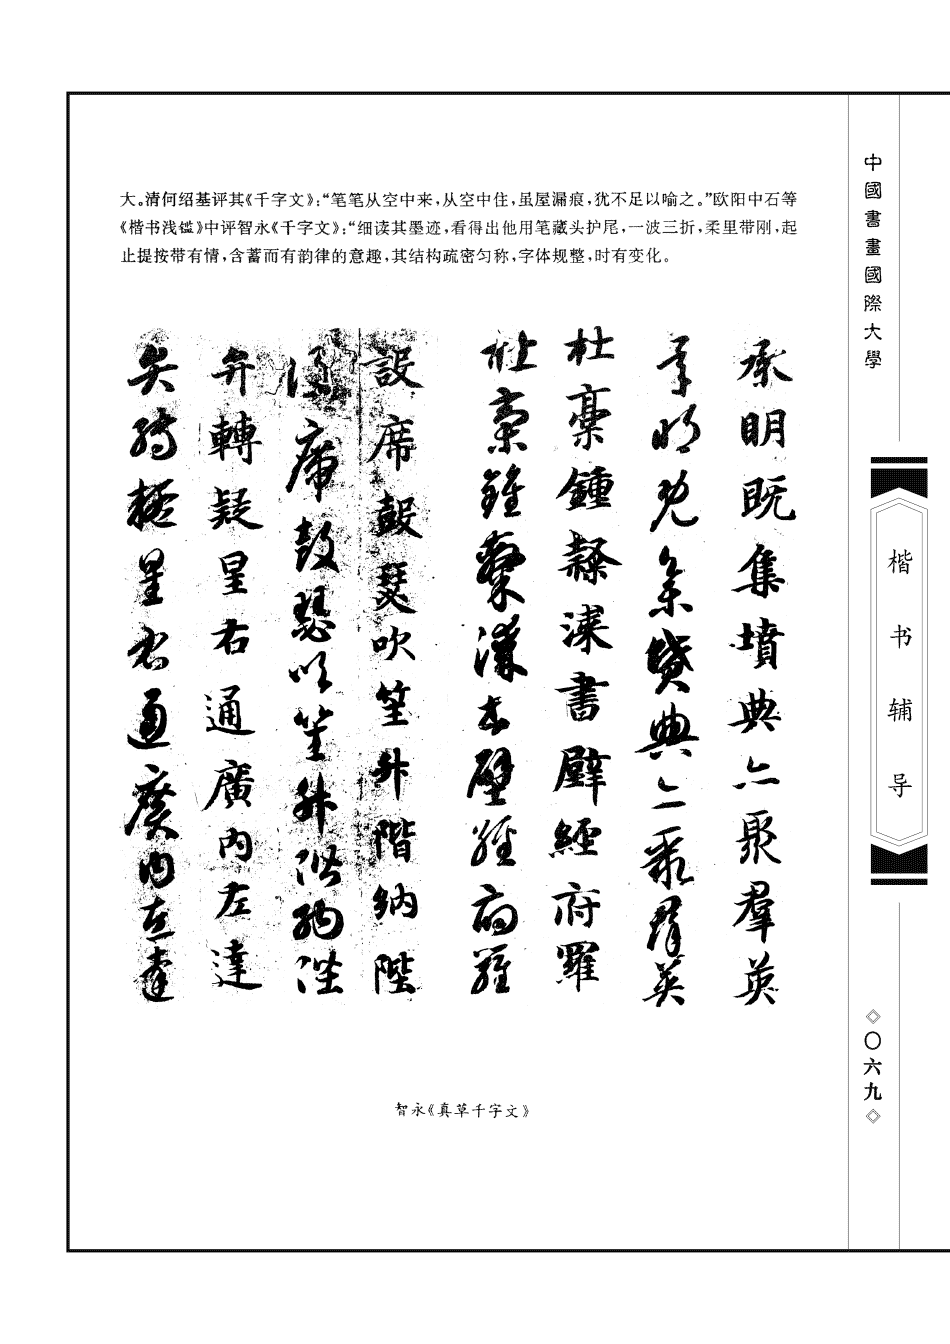 大。清何绍基评其《千字文》：“笔笔从空中来，从空中住，虽屋漏痕，犹不足以喻之。”欧阳中石等
《楷书浅鉴》中评智永《千字文》：“细读其墨迹，看得出他用笔藏头护尾，一波三折，柔里带刚，起
止提按带有情，含蓄而有韵律的意趣，其结构疏密匀称，字体规整，时有变化。
承明既集墳典亦聚羣英
承明既集墳典亦聚羣英
杜稾鍾隸漆書壁經府羅
杜稾鍾隸漆書壁經府羅
設席鼓瑟吹笙升階納陛
設席鼓瑟吹笙升階納陛
弁轉疑星右通廣內左達
弁轉疑星右通廣內左達
智永《真草千字文》
中國書畫國際大學
楷书辅导
◇〇六九◇